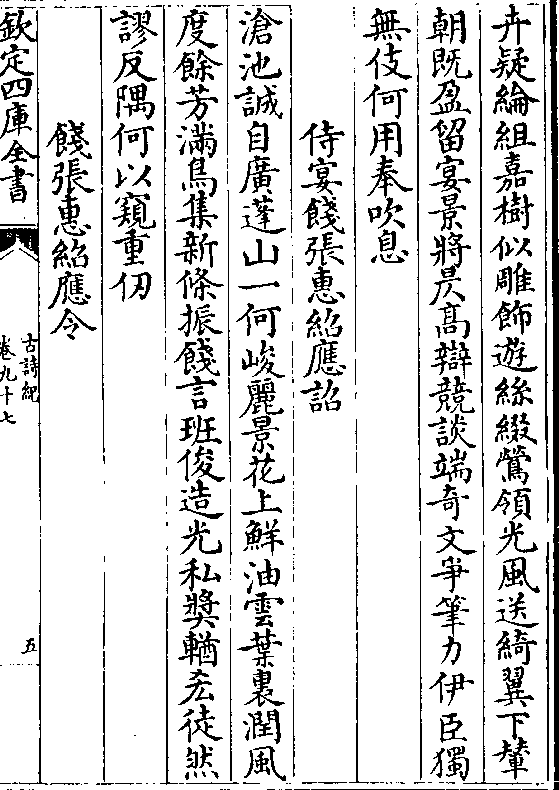 卉疑綸組嘉樹似雕飾遊絲綴鶯領光風送綺翼下輦
朝既盈留宴景將昃髙辯競談端奇文爭筆力伊臣獨
無伎何用奉吹息
侍宴餞張惠紹應詔
滄池誠自廣蓬山一何峻麗景花上鮮油雲葉裏潤風
度餘芳滿鳥集新條振餞言班俊造光私奬輶宏徒然
謬反隅何以窺重仞
餞張惠紹應令
欽定四庫全書
古詩紀
卷九十七
五